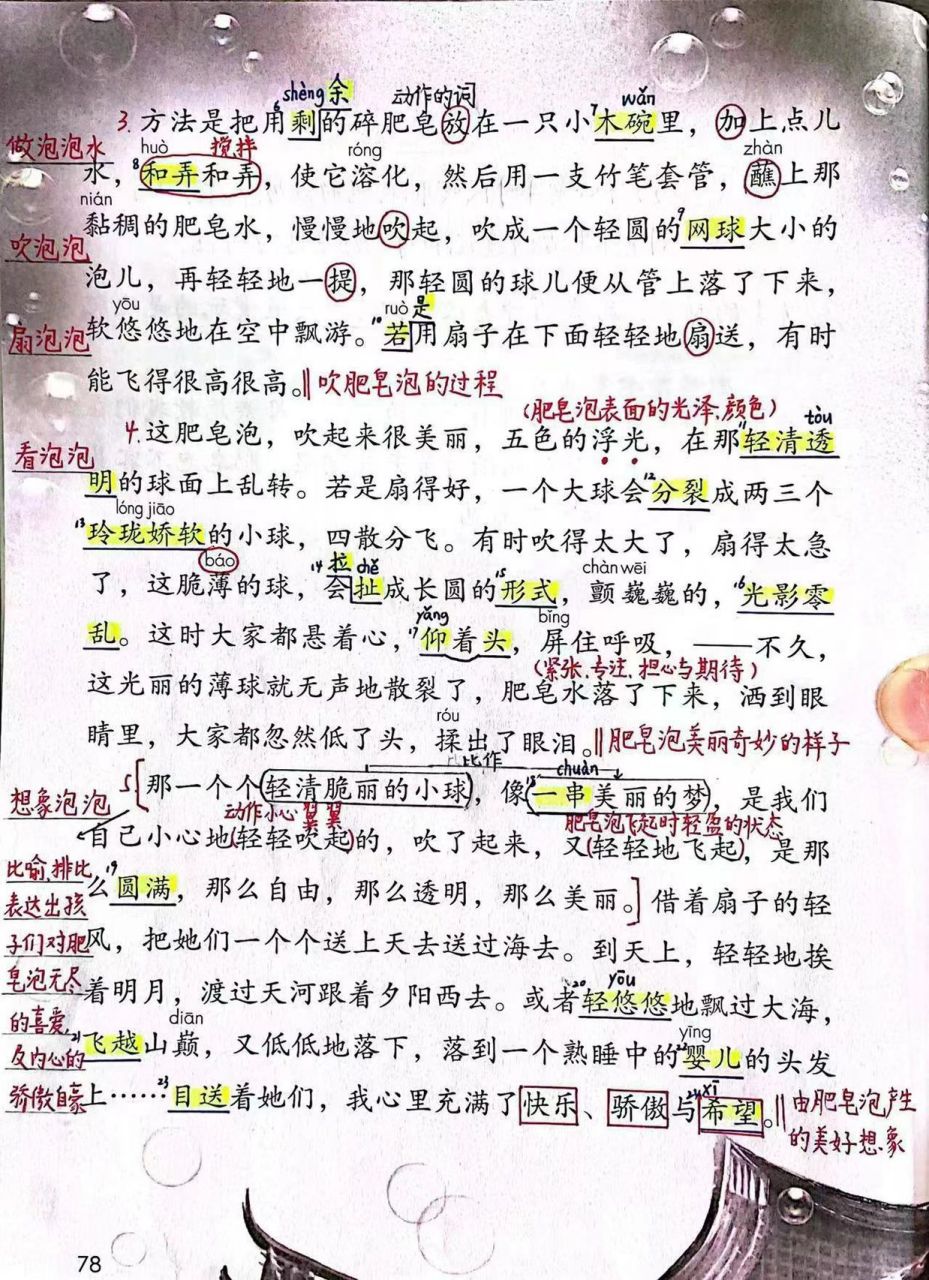 shèng 余 动作的词 wǎn
3. 方法是把用6剩的碎肥皂放在一只小7木碗里，加上点儿
做泡泡水 huò 搅拌 róng zhàn
水，8和弄和弄，使它溶化，然后用一支竹笔套管，蘸上那
nián
黏稠的肥皂水，慢慢地吹起，吹成一个轻圆的9网球大小的
吹泡泡
泡儿，再轻轻地一提，那轻圆的球儿便从管上落了下来，
yōu ruò 是
扇泡泡 软悠悠地在空中飘游。10若用扇子在下面轻轻地扇送，有时
能飞得很高很高。‖吹肥皂泡的过程
(肥皂泡表面的光泽、颜色) tòu
4. 这肥皂泡，吹起来很美丽，五色的浮光，在那11轻清透
看泡泡
明的球面上乱转。若是扇得好，一个大球会12分裂成两三个
lóng jiāo
13玲珑娇软的小球，四散分飞。有时吹得太大了，扇得太急
báo 拉 chě chàn wēi
了，这脆薄的球，会14扯成长圆的15形式，颤巍巍的，16光影零
yǎng bǐng
乱。这时大家都悬着心，17仰着头，屏住呼吸，——不久，
(紧张、专注、担心与期待)
这光丽的薄球就无声地散裂了，肥皂水落了下来，洒到眼
róu
睛里，大家都忽然低了头，揉出了眼泪。‖肥皂泡美丽奇妙的样子
比作 chuàn
5 那一个个轻清脆丽的小球，像18一串美丽的梦，是我们
想象泡泡 动作小心翼翼 肥皂泡飞起时轻盈的状态
自己小心地(轻轻吹起)的，吹了起来，又(轻轻地飞起)，是那
么19圆满，那么自由，那么透明，那么美丽。] 借着扇子的轻
风，把她们一个个送上天去送过海去。到天上，轻轻地挨
yōu
着明月，渡过天河跟着夕阳西去。或者20轻悠悠地飘过大海，
diān yīng
21飞越山巅，又低低地落下，落到一个熟睡中的22婴儿的头发
xī
上……23目送着她们，我心里充满了快乐、骄傲与24希望。‖由肥皂泡产生
的美好想象
比喻、排比
表达出孩
子们对肥
皂泡无尽
的喜爱，
及内心的
骄傲自豪
78